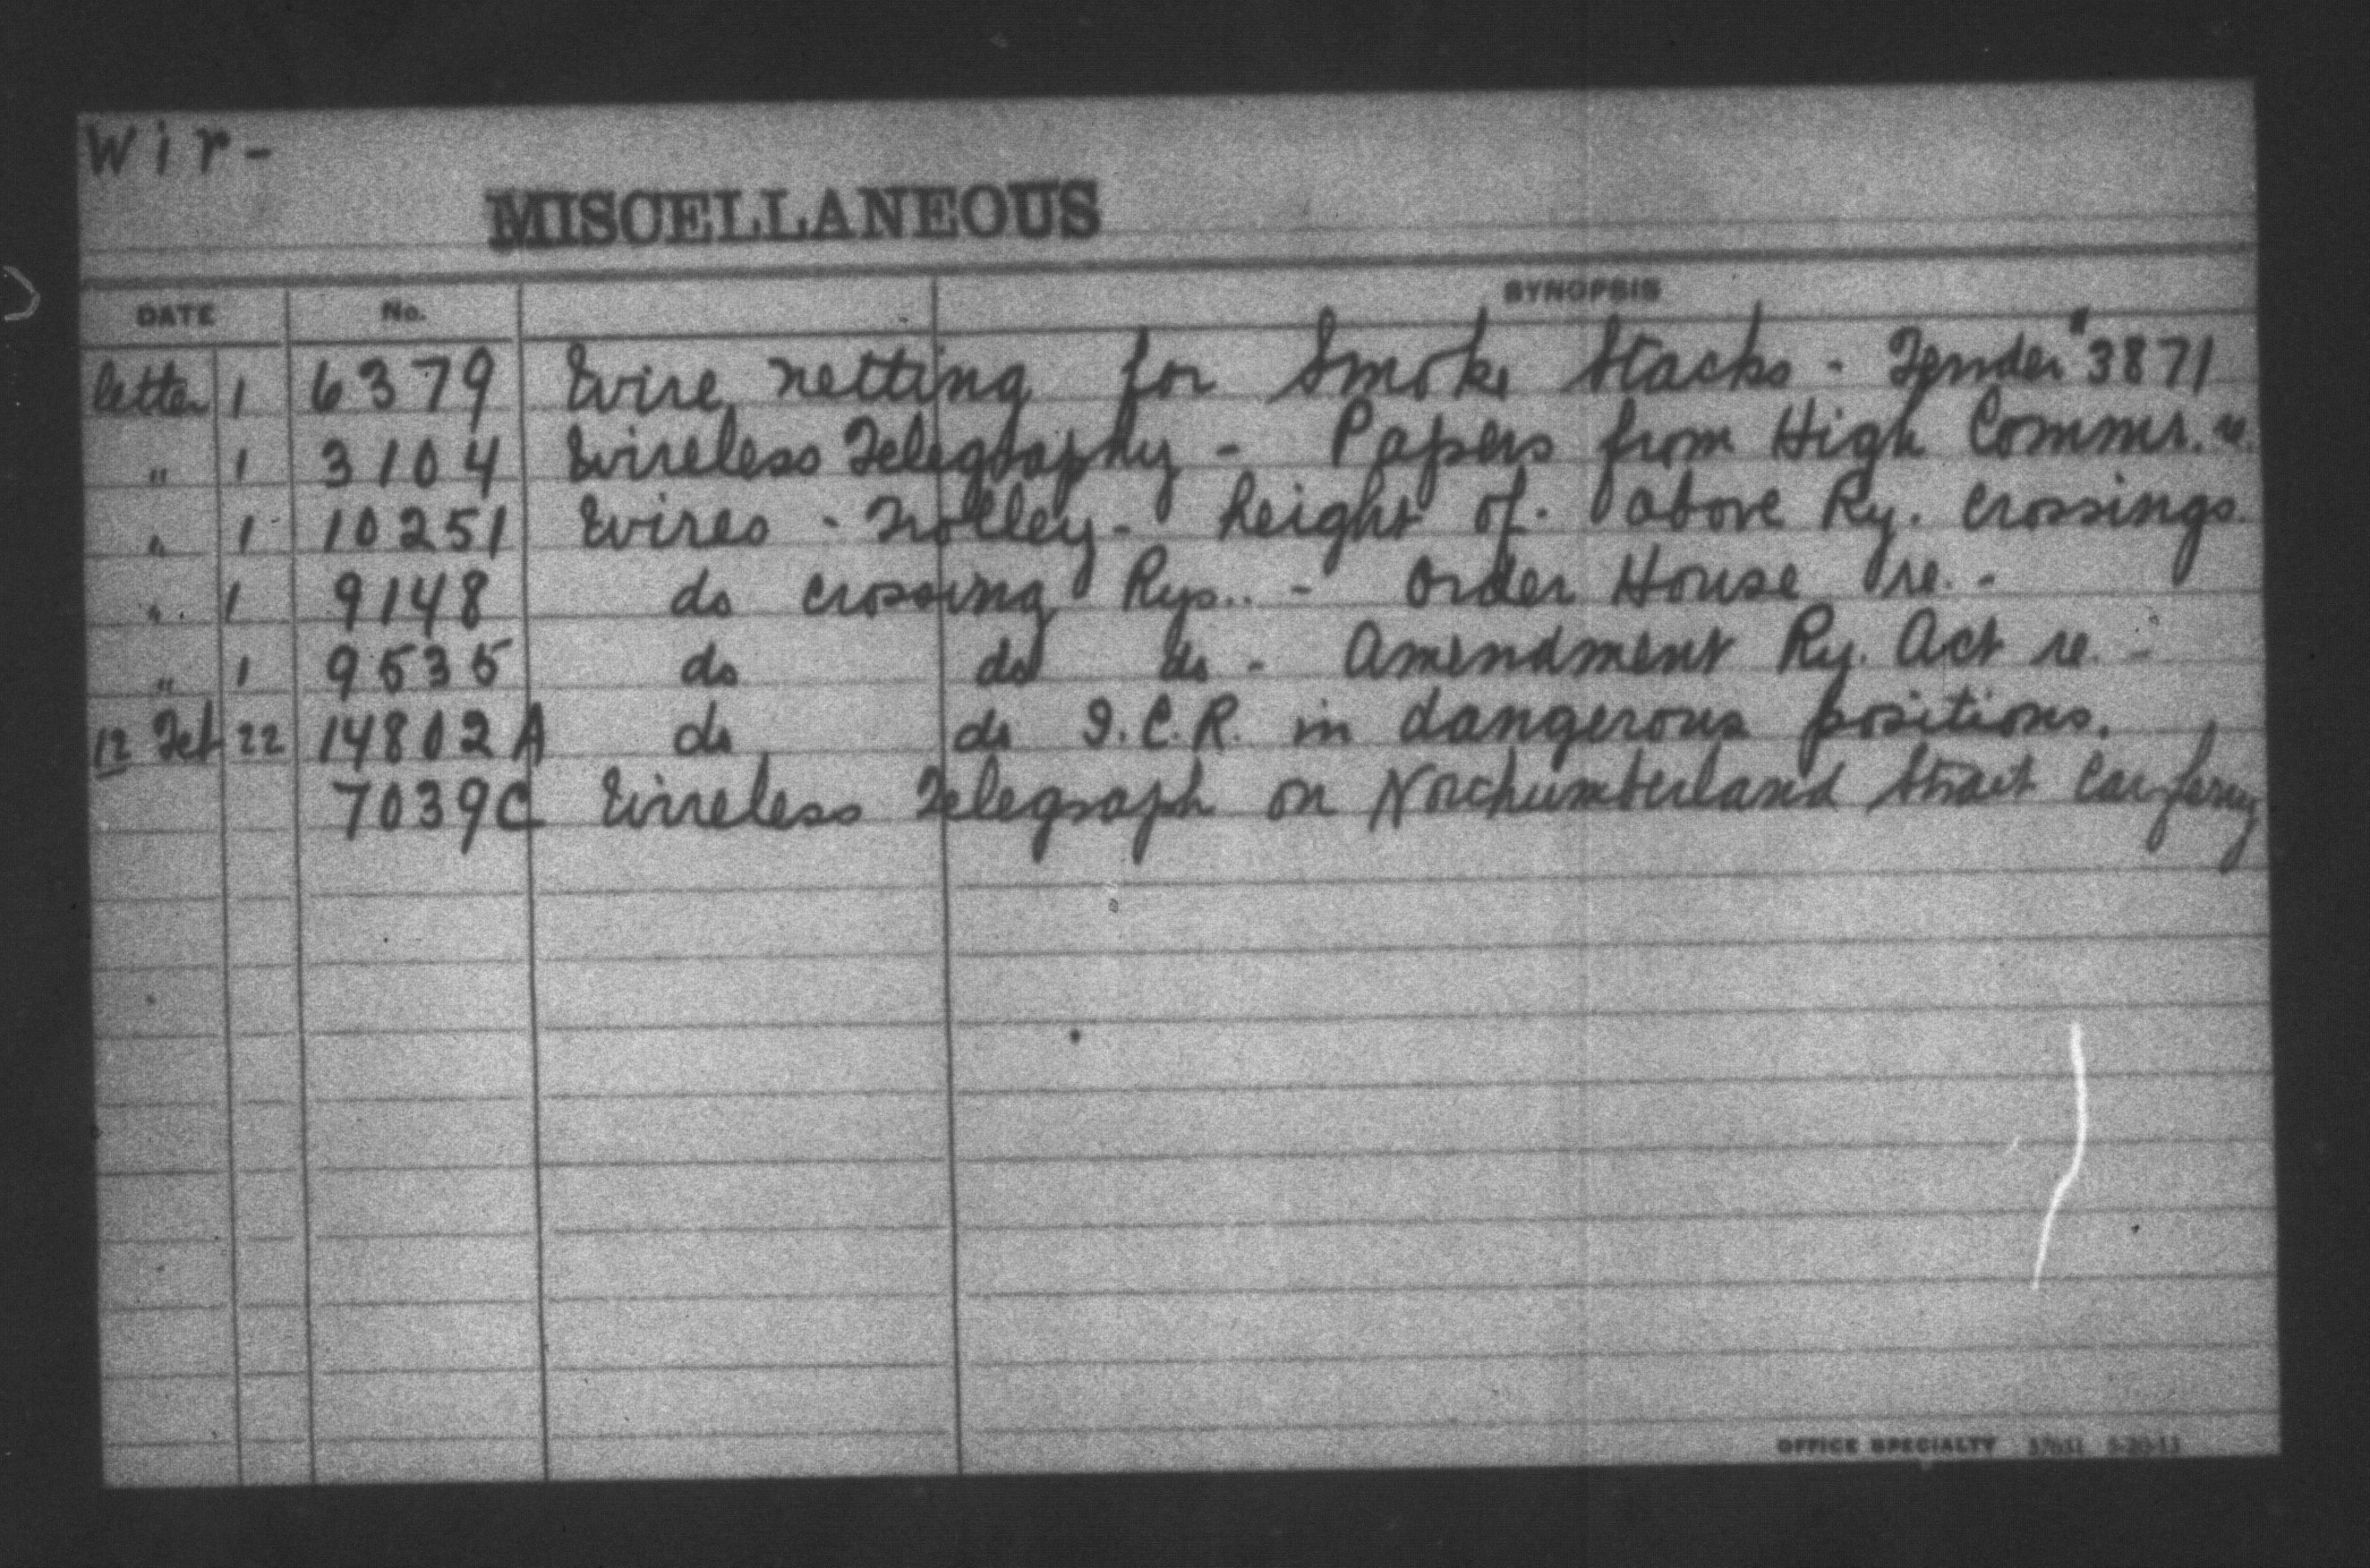 Wir-
MISCELLANEOUS
DATE No. SYNOPSIS
letter 1 6379 Wire netting for Smoke Stacks - Tender "3871
" 1 3104 Wireless Telegraphy - Papers from High Commr. re.
" 1 10251 Wires - Trolley - height of. above Ry. crossings.
" 1 9148 do crossing Rys.. - Order House re. -
" 1 9535 do do do - Amendment Ry. Act re. -
12 Feb 22 14802A do do I.C.R. in dangerous positions.
7039C Wireless Telegraph on Northumberland Strait Car ferry
OFFICE SPECIALTY